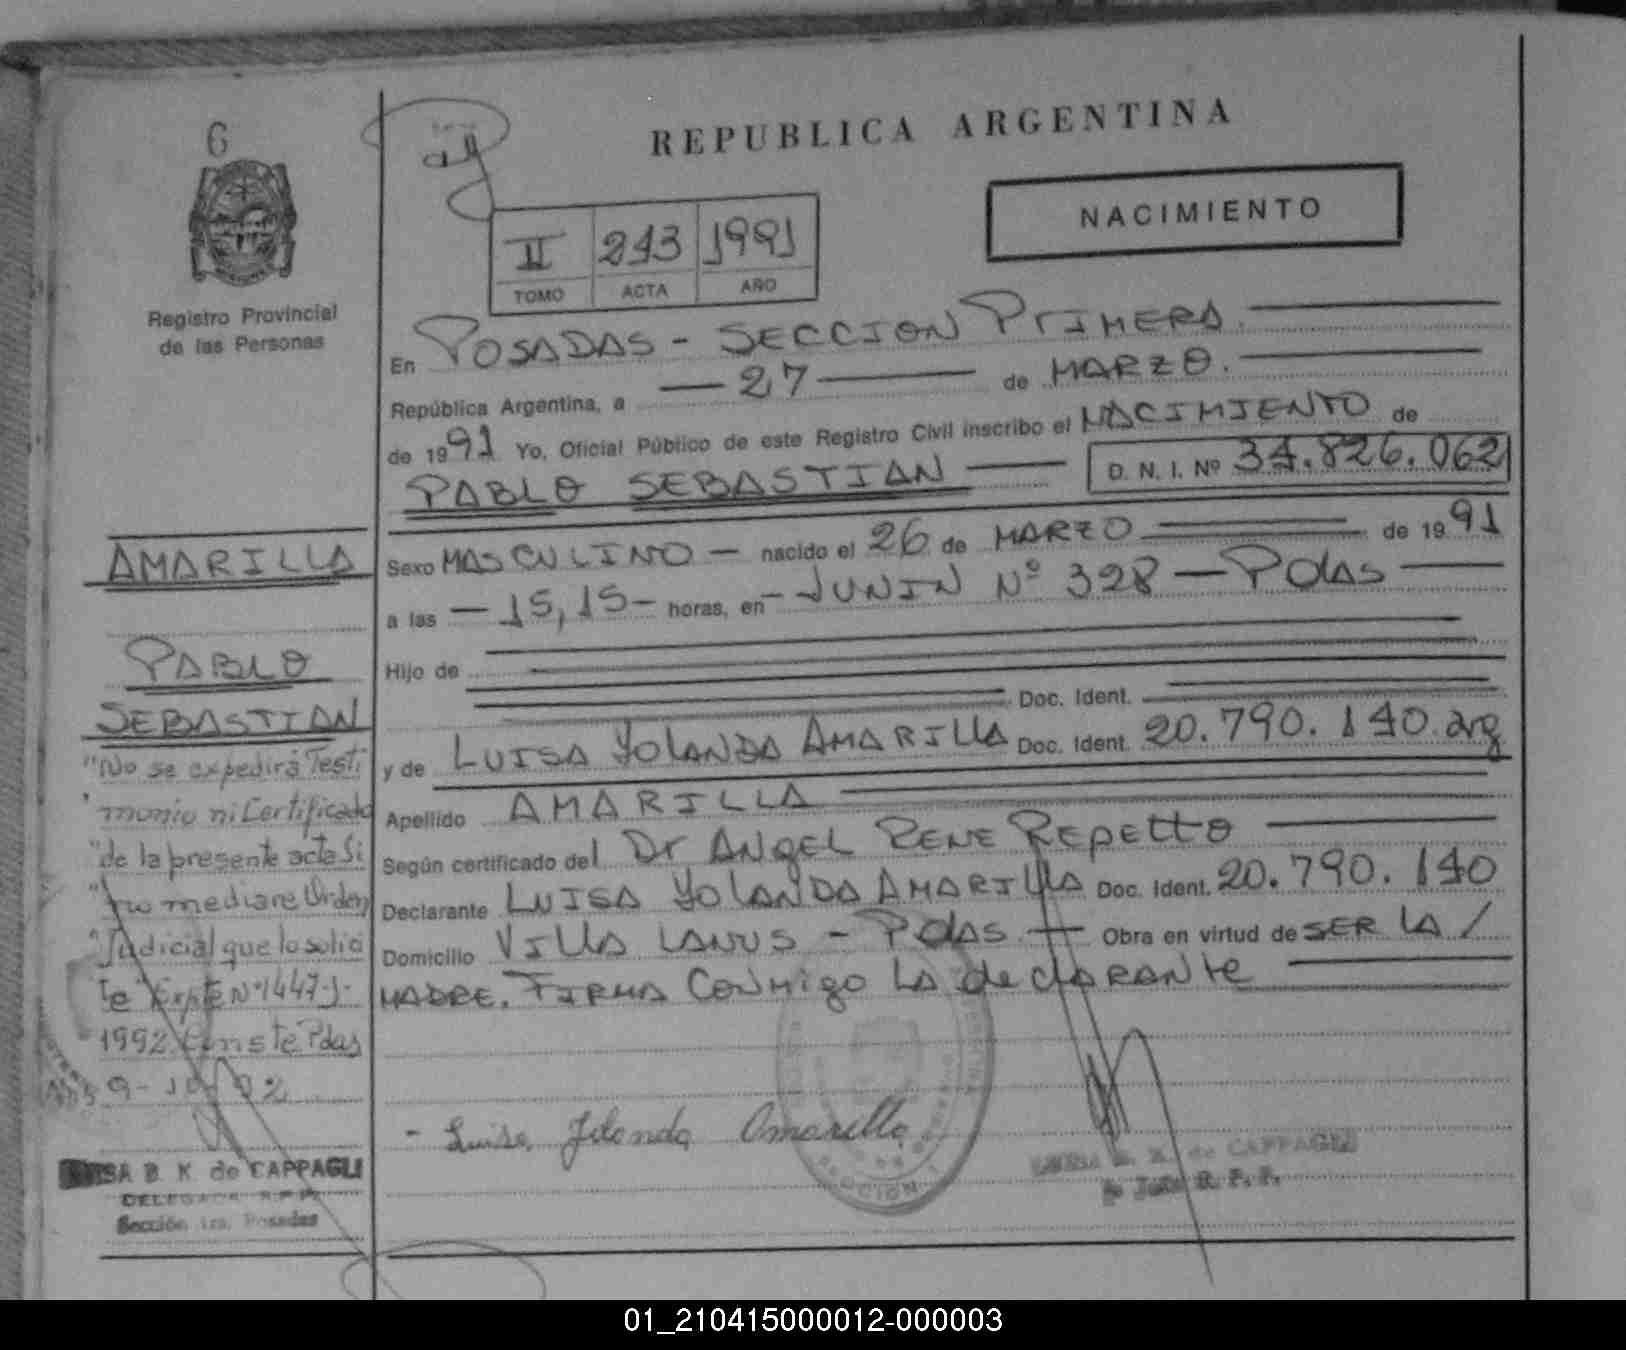 6
REPUBLICA ARGENTINA
NACIMIENTO
II 243 1991
TOMO ACTA AÑO
Registro Provincial
de las Personas
En POSADAS - SECCION PRIMERA.
República Argentina, a — 27 — de MARZO.
de 1991 Yo, Oficial Público de este Registro Civil inscribo el NACIMIENTO de
PABLO SEBASTIAN — D. N. I. Nº 34.826.062
AMARILLA
PABLO
SEBASTIAN
Sexo MASCULINO — nacido el 26 de MARZO de 1991
a las — 15,15 - horas, en - JUNIN Nº 328 — Pdas —
Hijo de
Doc. Ident.
y de LUISA YOLANDA AMARILLA Doc. Ident. 20.790.140. arg
Apellido AMARILLA
Según certificado del Dr ANGEL RENE REPETTO
Declarante LUISA YOLANDA AMARILLA Doc. Ident. 20.790.140
Domicilio VILLA LANUS - Pdas — Obra en virtud de SER LA /
MADRE. FIRMA CONMIGO LA declARANte
"No se expedirá Testi
"monio ni Certificado
"de la presente acta Si
"no mediare Orden
"Judicial que lo solici
te" Expte Nº 1447-J-
1992. Conste Pdas
9-10-92
- Luisa Yolanda Amarilla
B. K. de CAPPAGLI
DELEGADA R.P.P.
Sección 1ra. Posadas
LUISA B. K. de CAPPAGLI
R. P. P.
01_210415000012-000003